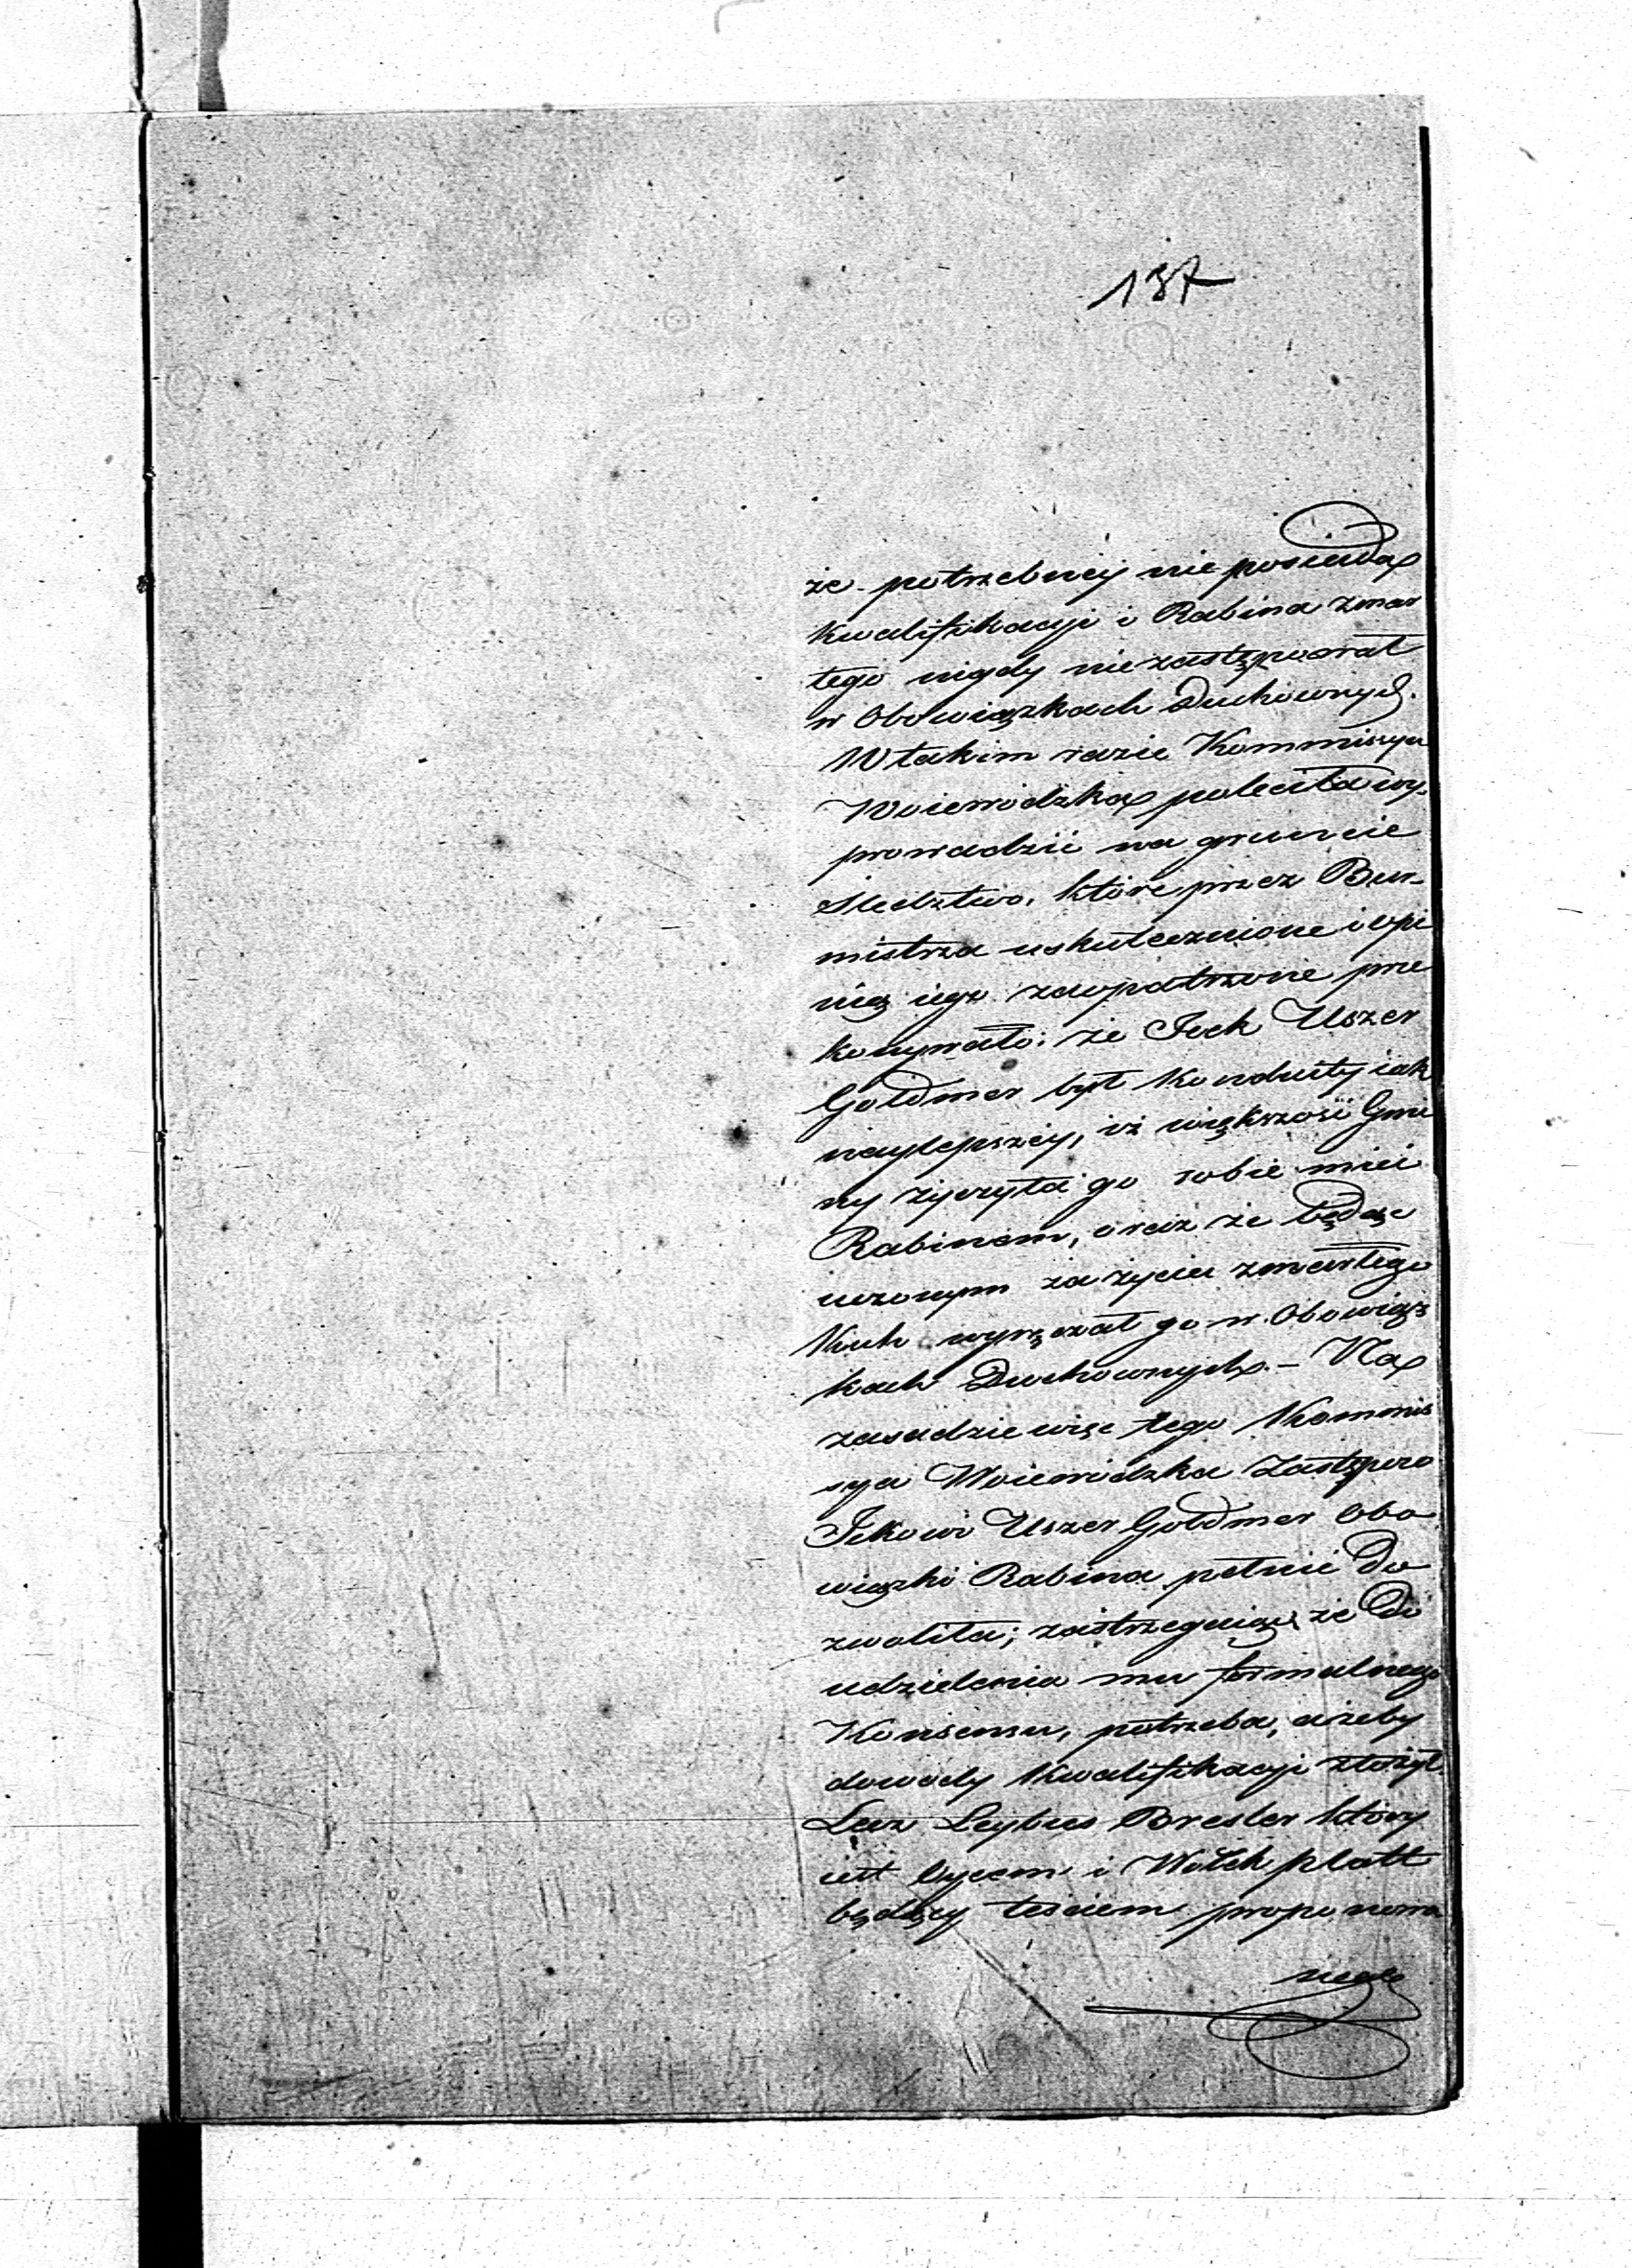 137
że potrzebney nie posiada
kwalifikacyi i Rabina zmar
tego nigdy niezastępował
w Obowiązkach Duchownych.
W takim razie Kommissya
Woiewódzka poleciła wy-
prowadzić na gruncie
Sledztwo, które przez Bur-
mistrza uskutecznione i opi
nią iego zaopatrzone prze
konywało: że Icek Uszer
Goldmer był konduity iak
naylepszey, iż większość Gmi
ny życzyła go sobie mieć
Rabinem, oraz że będąc
uczonym za życia zmarłego
Kuh wyręczał go w Obowiąz
kach Duchownych. - Na
zasadzie więc tego Kommis
sya Woiewódzka Zastępczo
Ickowi Uszer Goldmer Obo
wiązki Rabina pełnić Do
zwoliła; zastrzegaiąc, że Do
udzielenia mu formalnego
Konsensu, potrzeba, ażeby
dowody kwalifikacyi złożył.
Lecz Leybus Bresler który
iest Oycem i Wolek Platt
będący teściem proponowa
nego